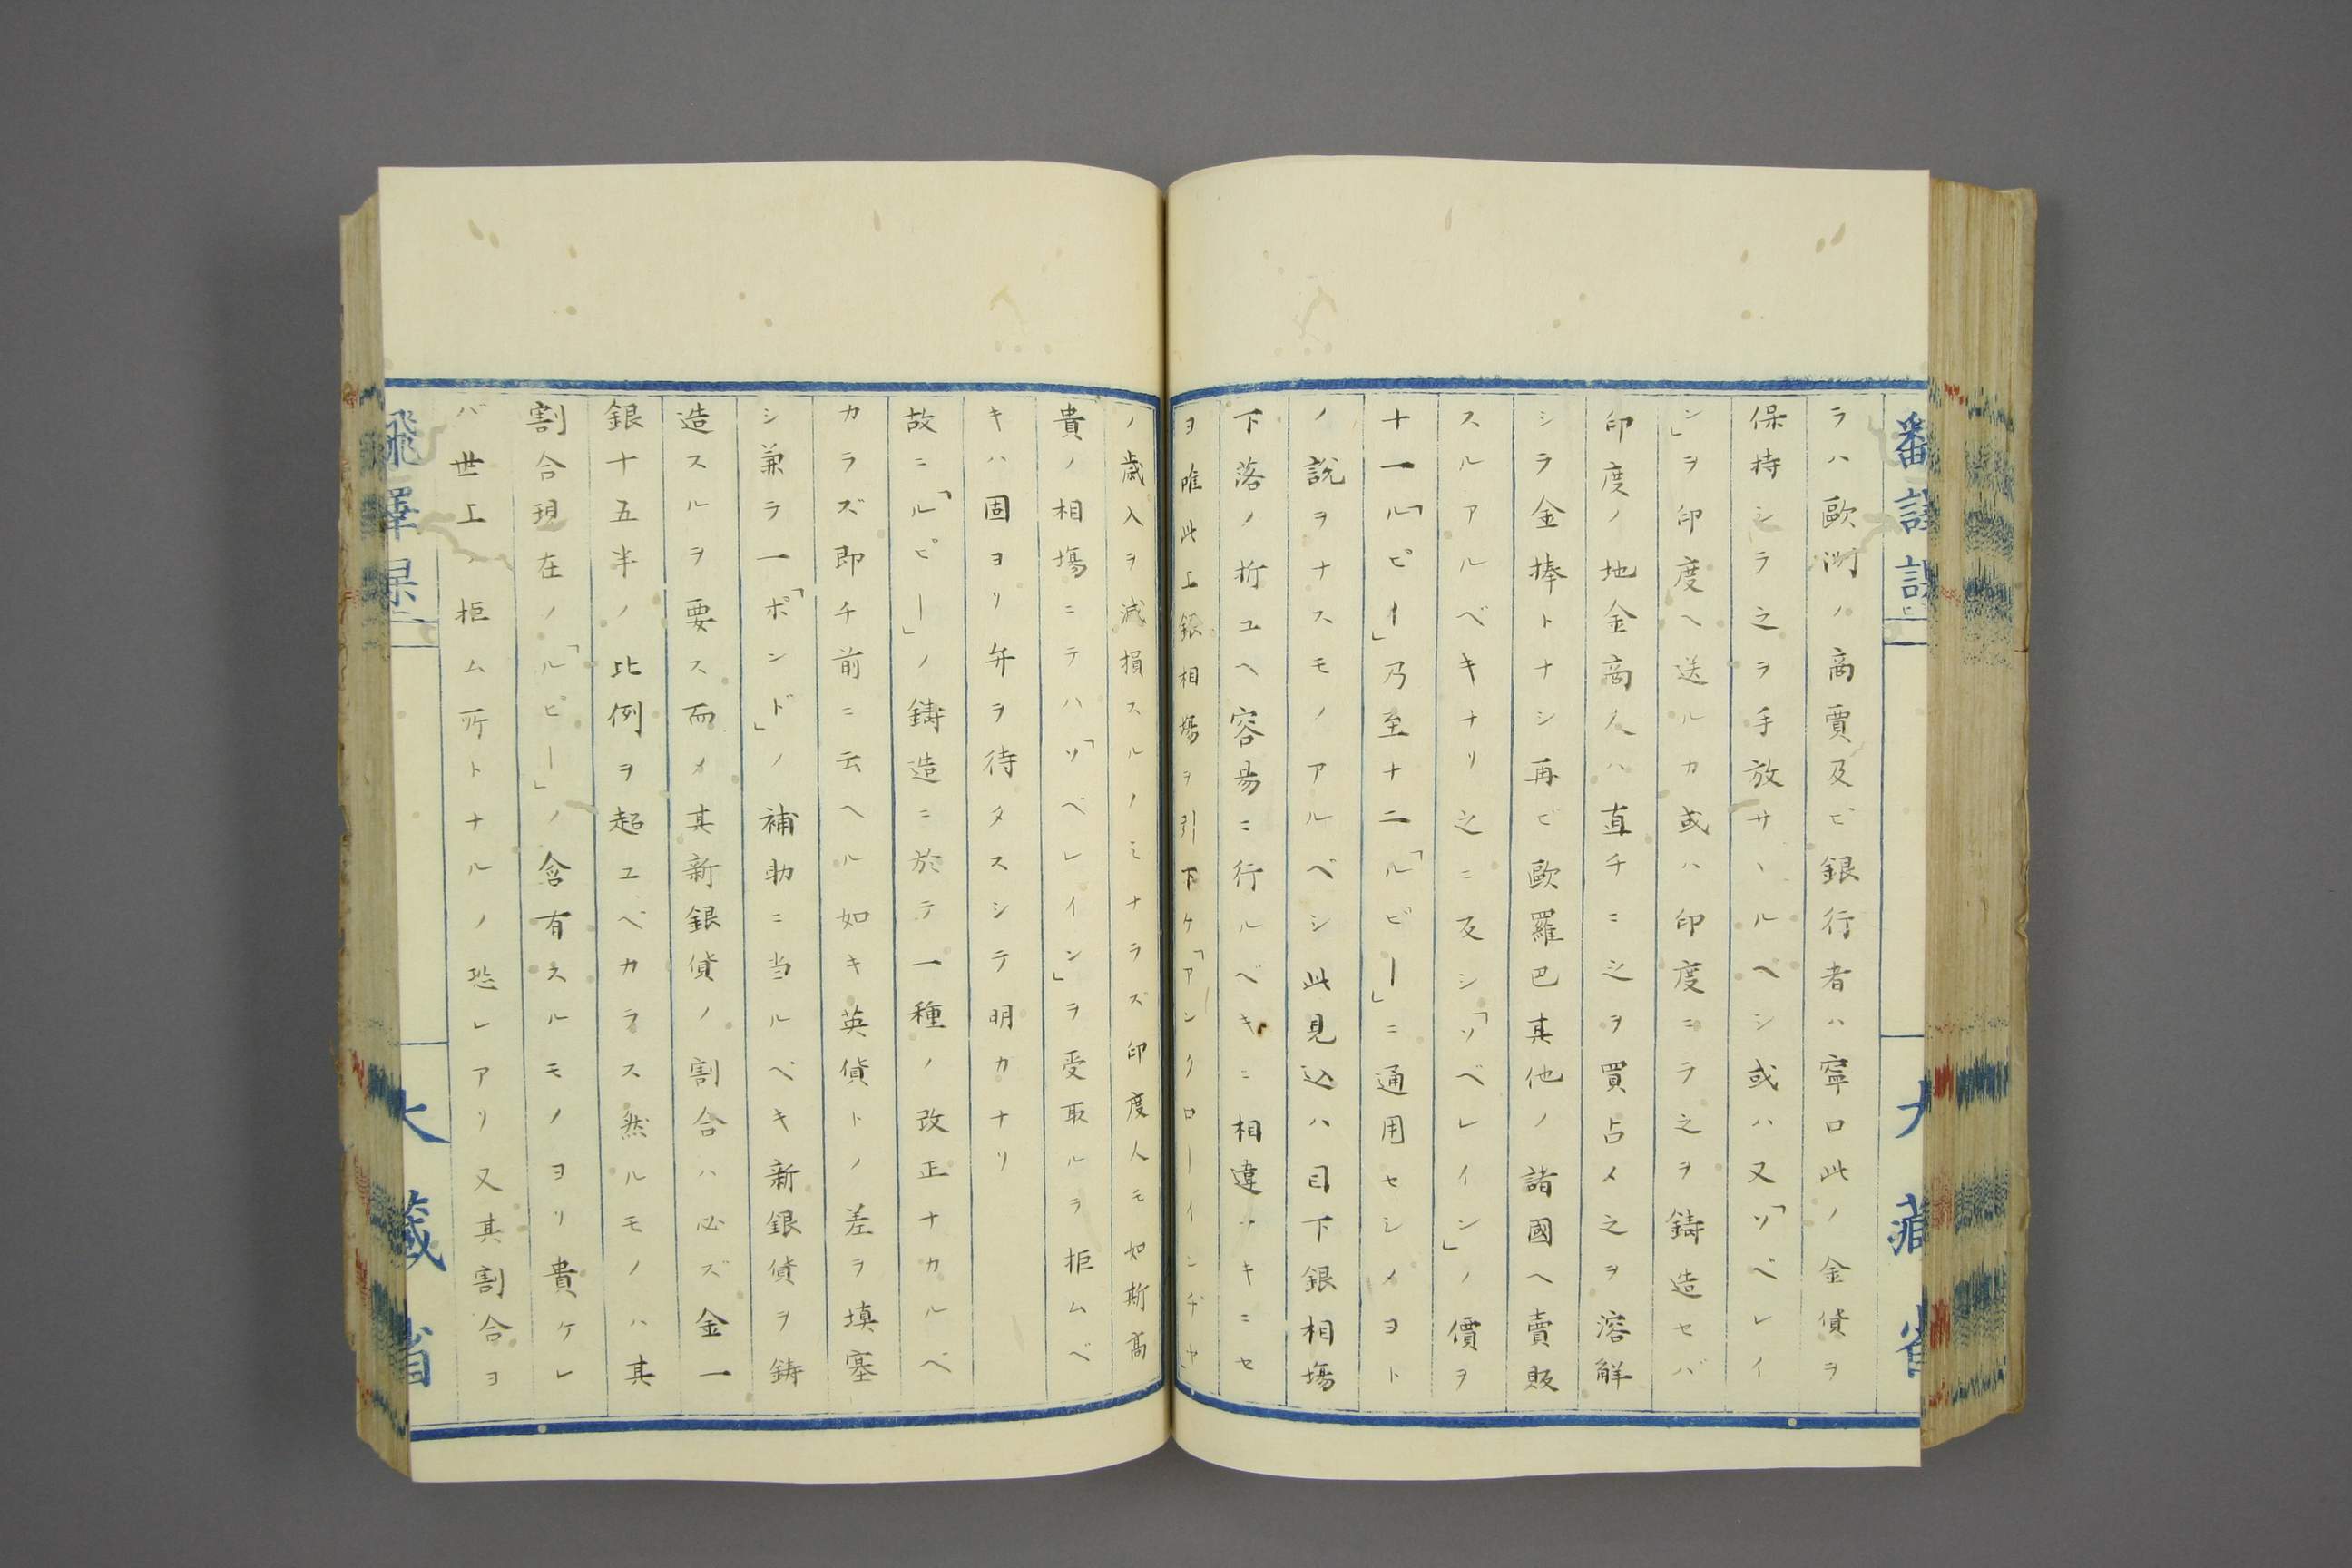 ラハ歐洲ノ商賈及ビ銀行者ハ寧ロ此ノ金貨ヲ
保持シテ之ヲ手放サヽルヘシ或ハ又「ソベレイ
ン」ヲ印度ヘ送ルカ或ハ印度ニテ之ヲ鋳造セバ
印度ノ地金商人ハ直チニ之ヲ買占メ之ヲ溶解
シテ金捧トナシ再ビ歐羅巴其他ノ諸國ヘ賣販
スルアルベキナリ之ニ反シ「ソベレイン」ノ價ヲ
十一「ルピー」乃至十二「ルピー」ニ通用セシメヨト
ノ説ヲナスモノアルベシ此見込ハ目下銀相場
下落ノ折ユヘ容易ニ行ルベキニ相違ナキニセ
ヨ唯此上銀相場ヲ引下ケ「アンクローインヂヤ」
ノ歳入ヲ減損スルノミナラズ印度人モ如斯高
貴ノ相場ニテハ「ソベレイン」ヲ受取ルヲ拒ムベ
キハ固ヨリ弁ヲ待タスシテ明カナリ
故ニ「ルピー」ノ鋳造ニ於テ一種ノ改正ナカルベ
カラズ即チ前ニ云ヘル如キ英貨トノ差ヲ填塞
シ兼テ一「ポンド」ノ補助ニ当ルベキ新銀貨ヲ鋳
造スルヲ要ス而メ其新銀貨ノ割合ハ必ズ金一
銀十五半ノ比例ヲ超ユベカラス然ルモノハ其
割合現在ノ「ルピー」ノ含有スルモノヨリ貴ケレ
バ世上ヽ拒ム所トナルノ恐レアリ又其割合ヨ
大藏省
大藏省